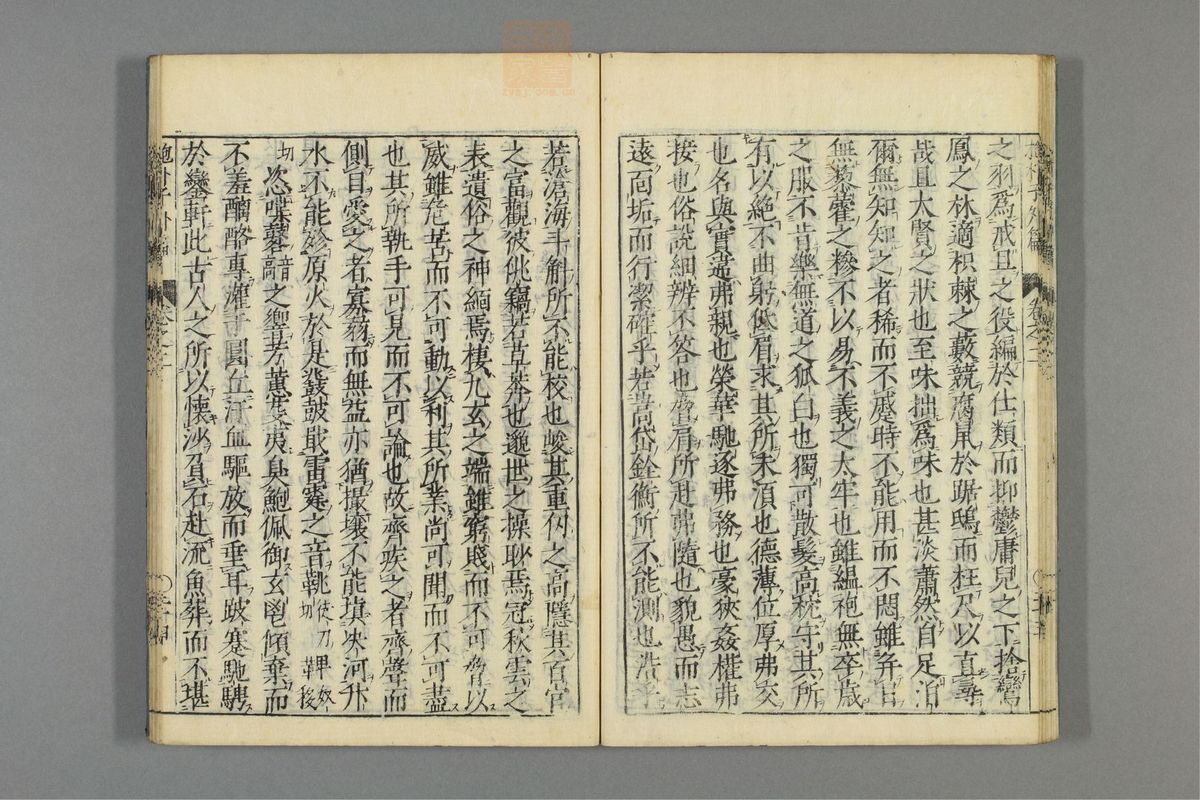 之羽爲戒旦之役編於仕類而抑鬱庸兒之下捨鸞
鳳之林適枳棘之藪競腐鼠於踞鴟而枉尺以直尋
哉且大賢之狀也至味拙爲味也甚淡蕭然自足泊
爾無知知之者稀而不慼時不能用而不悶雖弃
無藜藿之糝不以易不義之太牢也雖縕袍無卒歲
之服不肯樂無道之狐白也獨可散髮高枕守其所
有以絶不曲躬低眉求其所未須也德薄位厚弗交
也名與實違弗親也榮華馳逐弗務也豪俠姦權弗
接也俗說細辨不答也脅肩所赴弗隨也貌愚而志
遠面垢而行潔確乎若嵩岱銓衡所不能測也浩乎
若滄海斗斛所不能校也峻其重仞之高隱其百官
之富觀彼佻竊若草芥也邈世之操眇焉冠秋雲之
表遺俗之神緬焉棲九玄之端雖窮賤而不可脅以
威雖危苦而不可動以利其所業尚可聞而不可盡
也其所執手可見而不可論也故齊疾之者齊聲而
側目愛之者寡弱而無益亦猶撮壤不能塡決河升
水不能殄原火於是瓫鼓戢雷霆之音鞉徒刀切鞞奴後
切恣喋鼛音之響芳蕙芟夷臭鮑佩御玄鬯傾棄而
不羞醨酪專灌于圓丘汗血驅放而垂耳跛蹇馳騁
於鑾軒此古人之所以懷沙負石赴流魚葬而不堪
抱朴子外篇
卷之二
〇三十四